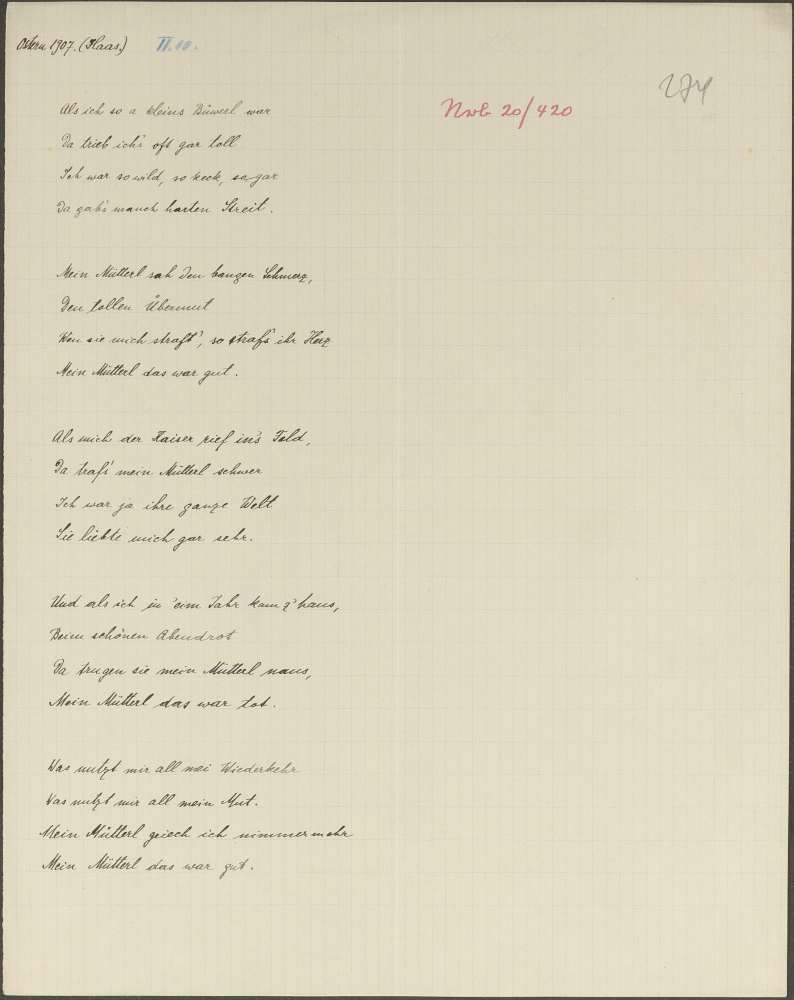 Ostern 1907. (Haas.) II.10.
274
Nvb 20/420
Als ich so a kleins Büwerl war
Da trieb ich's oft gar toll
Ich war so wild, so keck, sogar
Da gab's manch harten Streit.
Mein Mütterl sah den bangen Schmerz,
Den tollen Übermut
Wen sie mich straft', so straft's ihr Herz
Mein Mütterl das war gut.
Als mich der Kaiser rief in's Feld,
Da traf's mein Mütterl schwer
Ich war ja ihre ganze Welt
Sie liebte mich gar sehr.
Und als ich in 'eim Jahr kam z'haus,
Beim schönen Abendrot
Da trugen sie mein Mütterl naus,
Mein Mütterl das war tot.
Was nutzt mir all mei Wiederkehr
Was nutzt mir all mein Mut.
Mein Mütterl griech ich nimmermehr
Mein Mütterl das war gut.